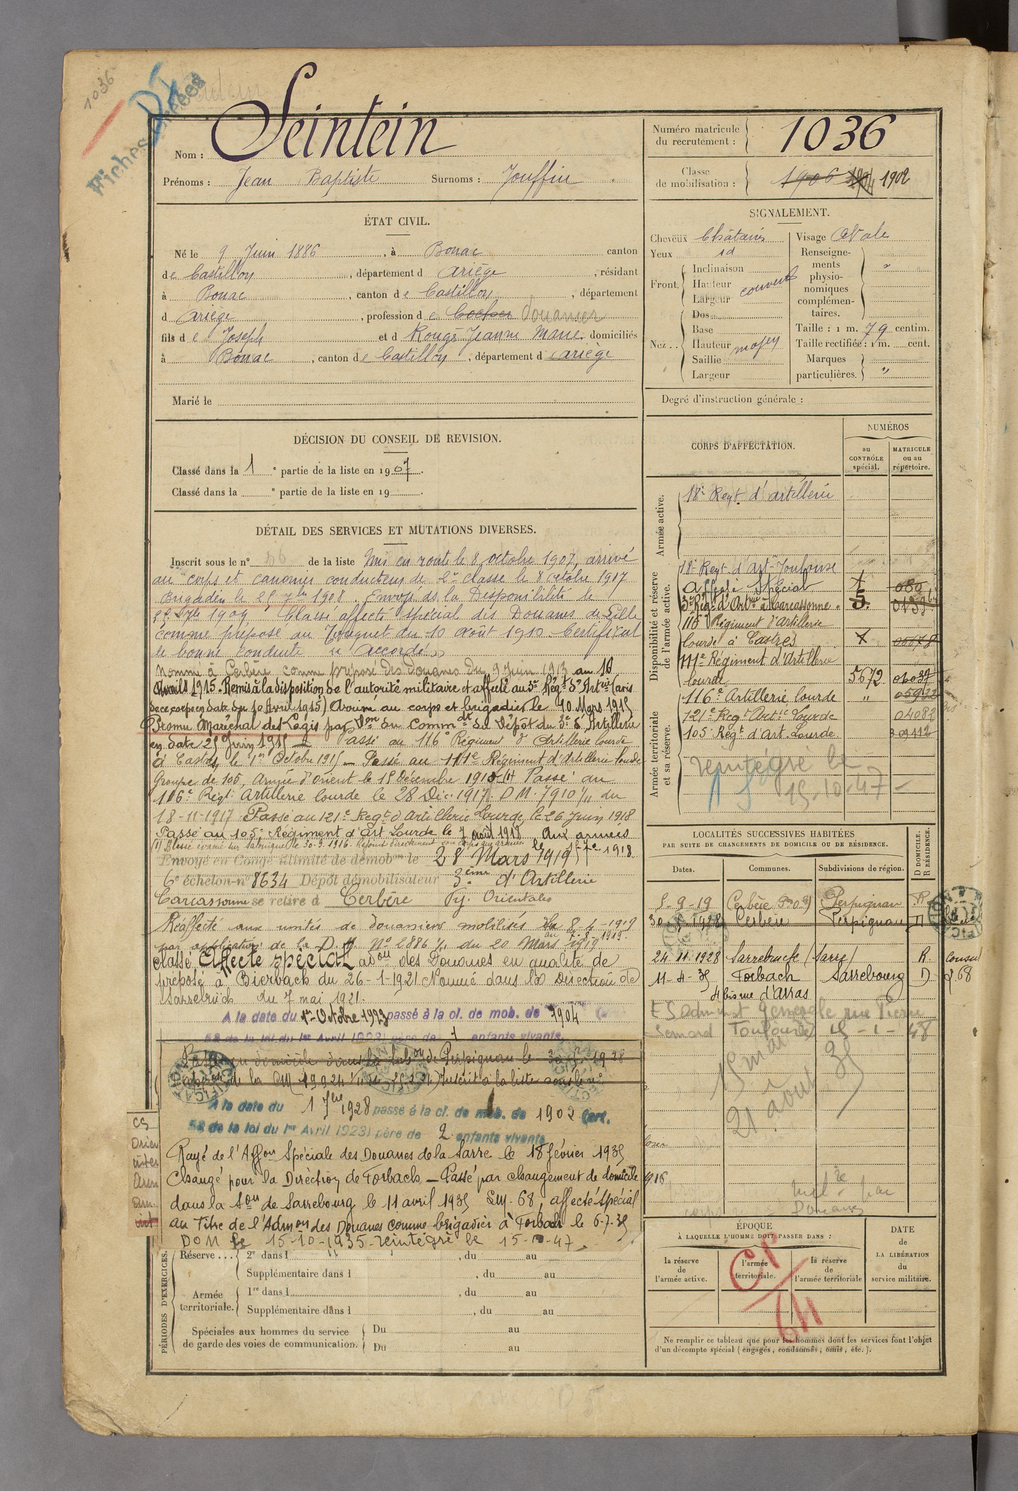 1036
Fiches
Nom : Seintein
Prénoms : Jean Baptiste Surnoms : Jouffin
Numéro matricule du recrutement : 1036
Classe de mobilisation : 1906 1904 1902
ÉTAT CIVIL.
Né le 9 Juin 1886, à Bonac canton
de Castillon, département d Ariège, résidant
à Bonac, canton de Castillon, département
d Ariège, profession de Cocher Douanier
fils de Joseph et d Rougé Jeanne Marie domiciliés
à Bonac, canton de Castillon, département d Ariège
Marié le
SIGNALEMENT.
Cheveux Châtains
Yeux id
Front. Inclinaison
Hauteur
Largeur couvert
Nez.. Dos
Base
Hauteur moyen
Saillie
Largeur
Visage Ovale
Renseignements physionomiques complémentaires. "
Taille : 1 m. 79 centim.
Taille rectifiée : 1 m. cent.
Marques particulières. "
Degré d'instruction générale :
DÉCISION DU CONSEIL DE REVISION.
Classé dans la 1e partie de la liste en 1907.
Classé dans la e partie de la liste en 19
DÉTAIL DES SERVICES ET MUTATIONS DIVERSES.
Inscrit sous le n° 56 de la liste Mis en route le 8 octobre 1907, arrivé
au corps et canonnier conducteur de 2e classe le 8 octobre 1907
Brigadier le 25 7bre 1908. Envoyé dans la Disponibilité le
25 7bre 1909. Classé affecté spécial des Douanes de Lille
comme préposé au du 10 août 1910. Certificat
de bonne conduite accordé.
Nommé à Cerbère comme préposé des douanes du 9 Juin 1913 au 10
Avril 1915. Remis à la disposition de l'autorité militaire et affecté au 3e Régt d'Artrie
Arrivé au corps et brigadier le 10 Mars 1915
Promu Maréchal des Logis par du Commdt le Dépôt du 3e d'Artillerie
en date 25 Juin 1915 Passé au 116e Régiment d'Artillerie lourde
à Castres le 1er Octobre 1915 Passé au 111e Régiment d'Artillerie lourde
Groupe de 105, Armée d'Orient le 18 Décembre 1915 Passé au
116e Régt Artillerie lourde le 28 Dic. 1917. DM. 7910 1/11 du
18-11-1917 Passé au 121e Regt d'Artillerie Lourde le 26 Juin 1918
Passé au 105e Régiment d'Art Lourde le 7 août 1918 aux armées
Envoyé en Congé illimité de démobon le 28 Mars 1919
6e échelon n° 8634 Dépôt démobilisateur 3ème d'Artillerie
Carcassonne se retire à Cerbère Pyr. Orientales
Réaffecté aux unités de douaniers mobilisés
par application de la D.M. N° 2886 1/1 du 20 Mars 1919.
Classé Affecté spécial admon des Douanes en qualité de
préposé à Bierbach du 26-1-1921. Nommé dans la Direction de
Sarrebruck du 7 mai 1921.
A la date du 1er Octobre 1923 passé à la cl. de mob. de 1904
58 de la loi du 1er Avril 1923) père de 1 enfants vivants
A la date du 1 7bre 1928 passé à la cl. de mob. de 1902 (art.
58 de la loi du 1er Avril 1923) père de 2 enfants vivants
Rayé de l'Affon Spéciale des Douanes de la Sarre le 18 février 1935
Changé pour la Direction de Forbach — Passé par changement de domicile
dans la Son de Sarrebourg le 11 avril 1935 affecté spécial
au titre de l'Admon des Douanes comme brigadier à Forbach le 6-7-35
DOM le 15-10-1935. réintégré le 15-10-47
CORPS D'AFFECTATION.
NUMÉROS
au CONTRÔLE spécial.
MATRICULE ou au répertoire.
Armée active.
18e Regt d'artillerie
Disponibilité et réserve de l'armée active.
18e Regt d'Art Toulouse
Affecté Spécial
3e Régt d'Artie à Carcassonne
116e Régiment d'artillerie
lourde à Castres
111e Régiment d'Artillerie
lourde 5672
Armée territoriale et sa réserve.
116e Artillerie lourde "
121e Regt Artie Lourde
105 Régt d'Art. Lourde
réintégré le
15-10-47
LOCALITÉS SUCCESSIVES HABITÉES
PAR SUITE DE CHANGEMENTS DE DOMICILE OU DE RÉSIDENCE.
Dates. Communes. Subdivisions de région. D DOMICILE. R RÉSIDENCE.
5-9-19 Cerbère Perpignan R
Cerbère Perpignan D
24.11.1928 Sarrebruck (Sarre) R.
11-4-35 Forbach Sarrebourg D
4 bis rue d'Arras
Toulouse 15-1-48
15 mai
21 août 35
ÉPOQUE
À LAQUELLE L'HOMME DOIT PASSER DANS :
la réserve de l'armée active.
l'armée territoriale.
la réserve de l'armée territoriale
DATE DE LA LIBÉRATION du service militaire.
Ne remplir ce tableau que pour les hommes dont les services font l'objet
d'un décompte spécial (engagés, condamnés, omis, etc.).
PÉRIODES D'EXERCICES.
Réserve ... 2e dans l , du au
Supplémentaire dans l , du au
Armée territoriale. 1re dans l , du au
Supplémentaire dans l , du au
Spéciales aux hommes du service de garde des voies de communication. Du au
Du au